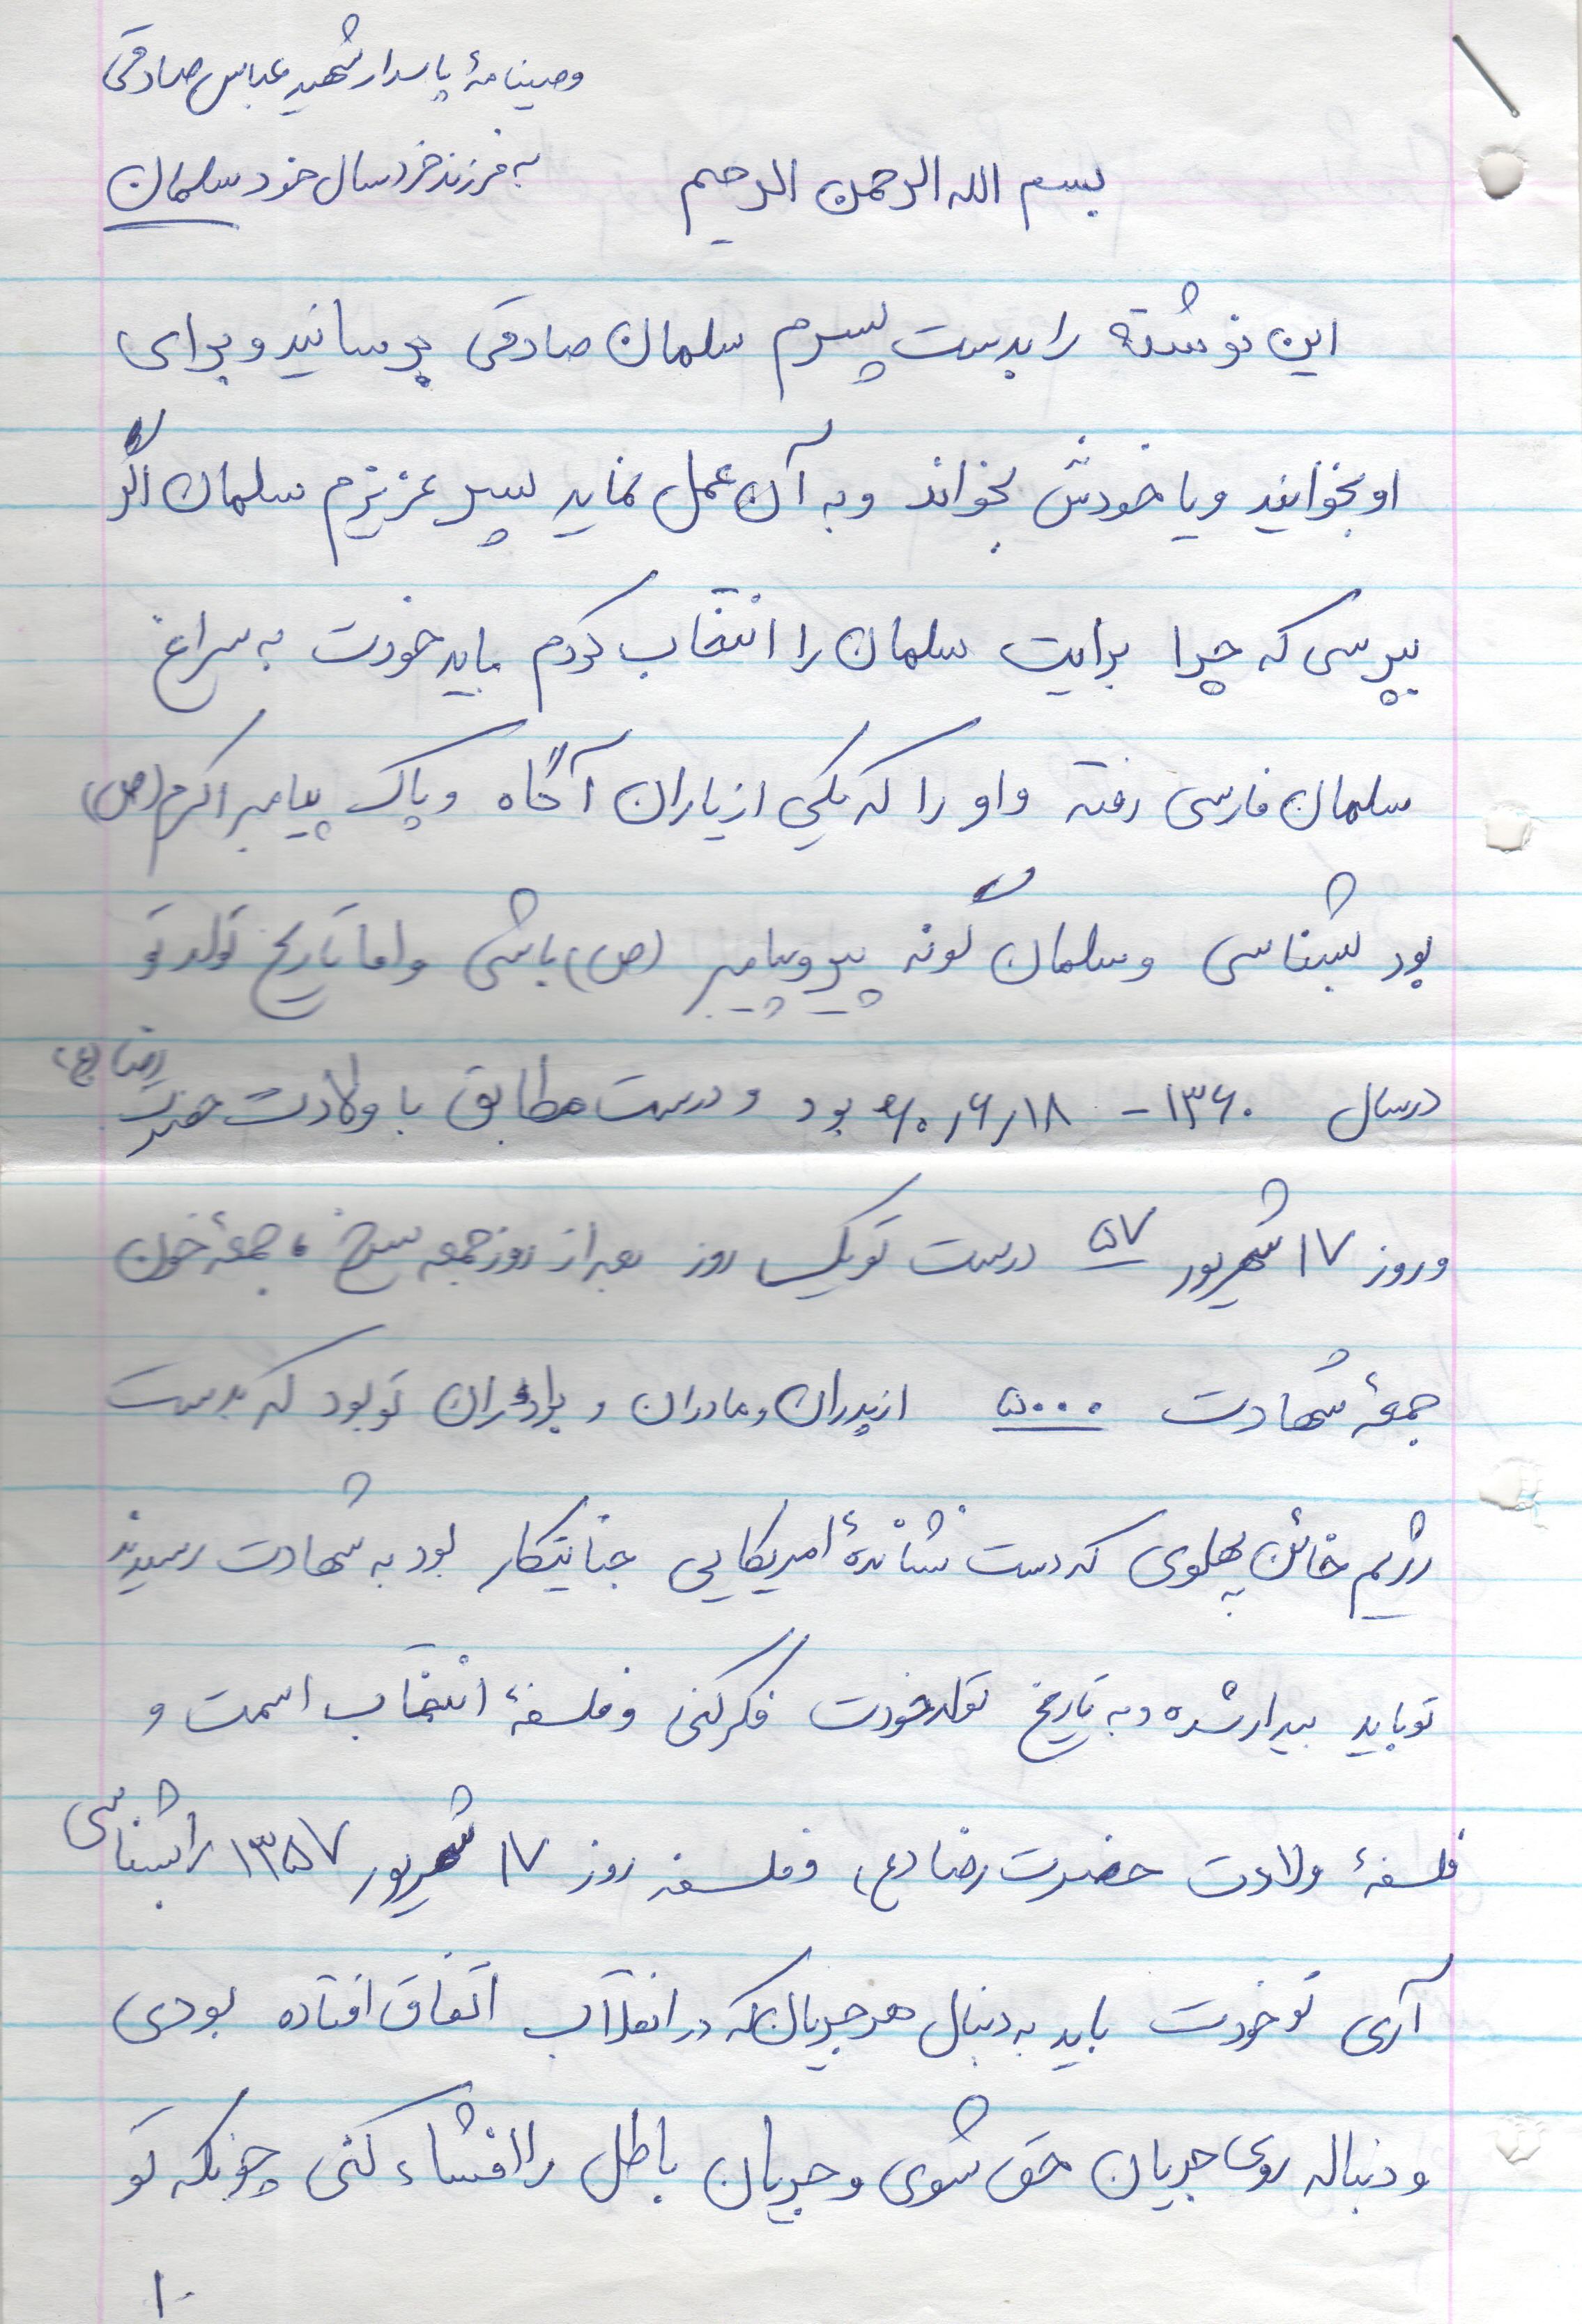 وصیتنامهٔ پاسدار شهید عباس صادقی
به فرزند خردسال خود سلمان
بسم الله الرحمن الرحیم
این نوشته را بدست پسرم سلمان صادقی برسانید و برای
او بخوانید و یا خودش بخواند و به آن عمل نماید پسر عزیزم سلمان اگر
بپرسی که چرا برایت سلمان را انتخاب کردم باید خودت به سراغ
سلمان فارسی رفته و او را که یکی از یاران آگاه و پاک پیامبر اکرم (ص)
بود بشناسی و سلمان گونه پیرو پیامبر (ص) باشی و اما تاریخ تولد تو
در سال ۱۳۶۰ - ۶۰/۶/۱۸ بود و درست مطابق با ولادت حضرت رضا (ع)
و روز ۱۷ شهریور ۵۷ درست تو یک روز بعد از روز جمعه سرخ، جمعهٔ خون
جمعهٔ شهادت ۵۰۰۰ از پدران و مادران و برادران تو بود که بدست
رژیم خائن پهلوی که دست نشاندهٔ امریکایی جنایتکار بود به شهادت رسیدند
تو باید بیدار شده و به تاریخ تولد خودت فکر کنی و فلسفهٔ انتخاب اسمت و
فلسفهٔ ولادت حضرت رضا (ع) و فلسفه روز ۱۷ شهریور ۱۳۵۷ را بشناسی
آری تو خودت باید به دنبال هر جریان که در انقلاب اتفاق افتاده بودی
و دنباله روی جریان حق شوی و جریان باطل را افشاء کنی چونکه تو
۱۰